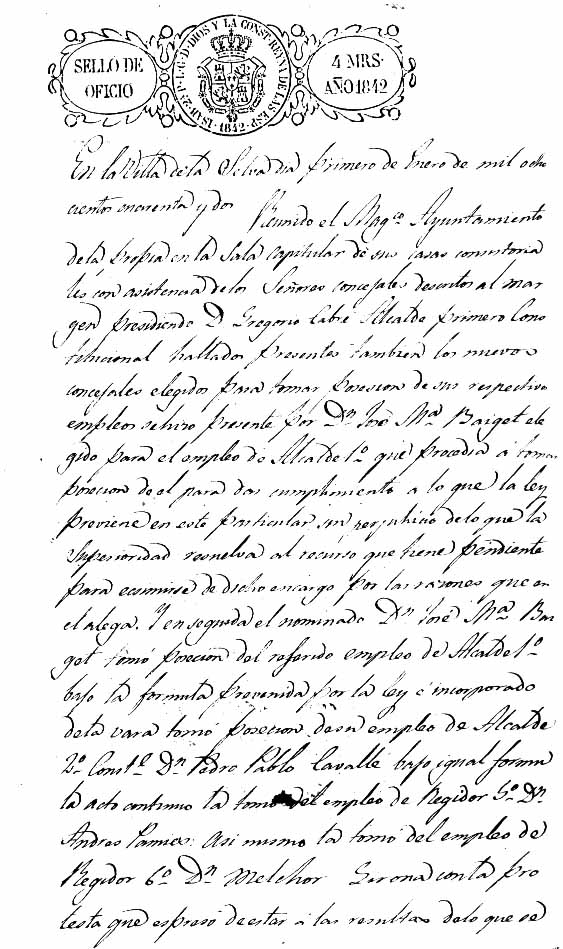 SELLO DE
OFICIO
ISAB. 2ª P. L. G. D. DIOS Y LA CONST. REYNA DE LAS ESP.
1842
4 MRS.
AÑO 1842
En la Villa de la Selva dia primero de Enero de mil ocho
cientos cuarenta y dos Reunido el Magco Ayuntamiento
de la propia en la Sala Capitular de sus casas consistoria
les con asistencia de los Señores concejales descritos al mar
gen presidiendo D Gregorio Cabré Alcalde primero Cons
titucional hallados presentes tambien los nuevos
concejales elegidos para tomar posesion de sus respectivos
empleos se hizo presente por Dn José Ma Baiget ele
gido para el empleo de Alcalde 1º que procedia á tomar
posecion de el para dar cumplimiento a lo que la ley
previene en este particular sin perjuhicio de lo que la
Superioridad resuelva al recurso que tiene pendiente
para ecsimirse de dicho encargo por las razones que en
el alega. Y en seguida el nominado Dn José Ma Bai
get tomó posecion del referido empleo de Alcalde 1º
bajo la formula prevenida por la ley é incorporado
de la vara tomó posecion de su empleo de Alcalde
2º Constl Dn Pedro Pablo Cavallé bajo igual formu
la acto continuo la tomó del empleo de Regidor 5º Dn
Andres Pamies: Asi mismo la tomó del empleo de
Regidor 6º Dn Melchor Girona con la pro
testa que espresó de estar á las resultas de lo que se